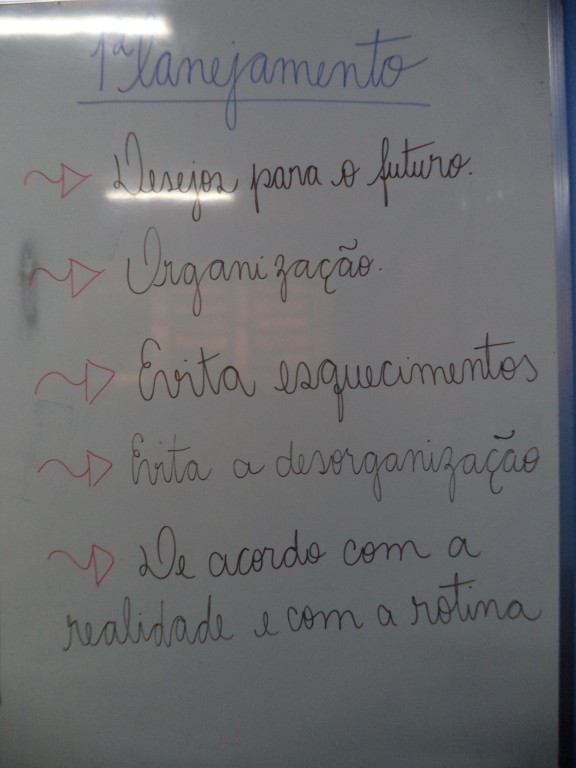 1º Planejamento
Desejos para o futuro.
Organização.
Evita esquecimentos
Evita a desorganização
De acordo com a
realidade e com a rotina